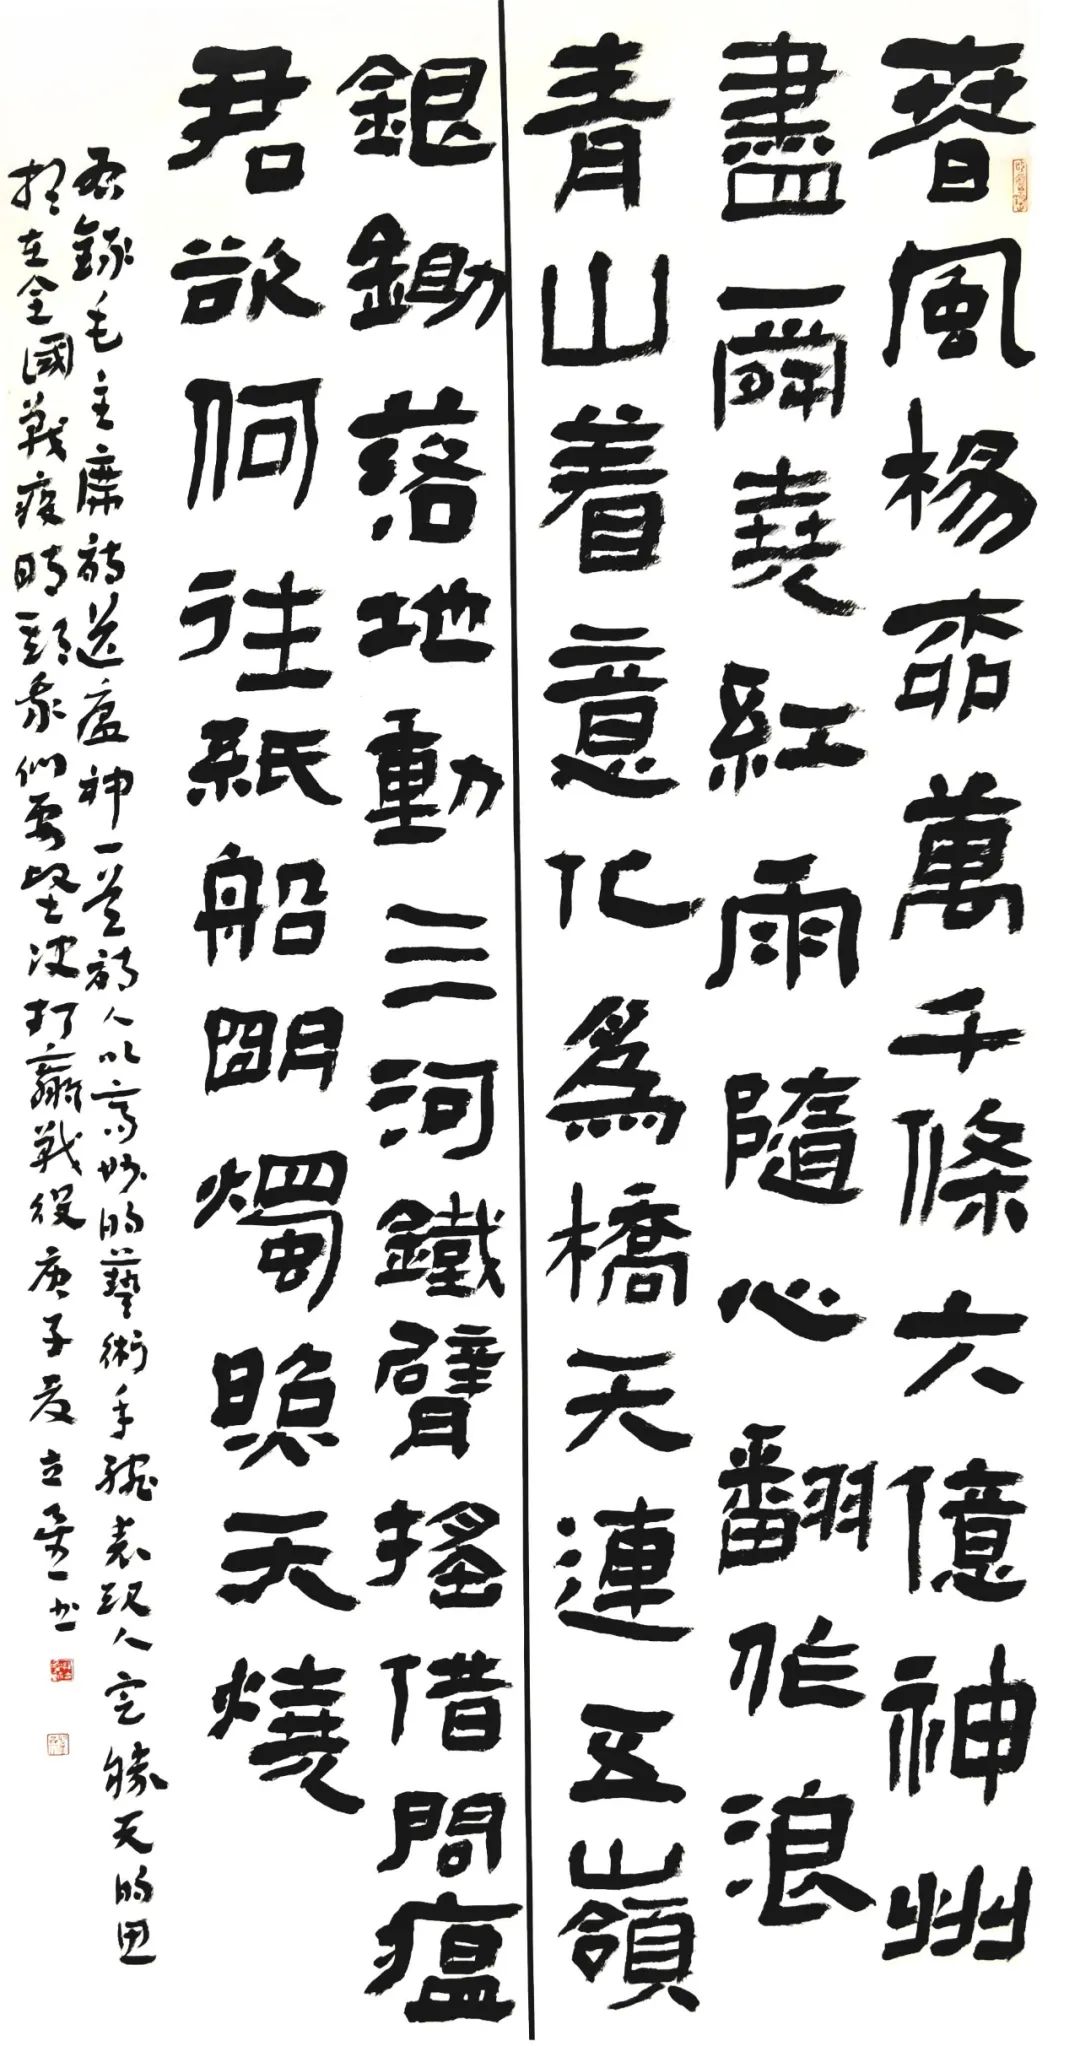 春風楊柳萬千條六億神州
盡舜堯紅雨隨心翻作浪
青山着意化為橋天連五嶺
銀鋤落地動三河鐵臂搖借問瘟
君欲何往紙船明燭照天燒
右錄毛主席詩送瘟神一首詩人以高妙的藝術手腕表現人定勝天的思
想在全國戰疫時我們要堅決打贏戰役庚子夏立